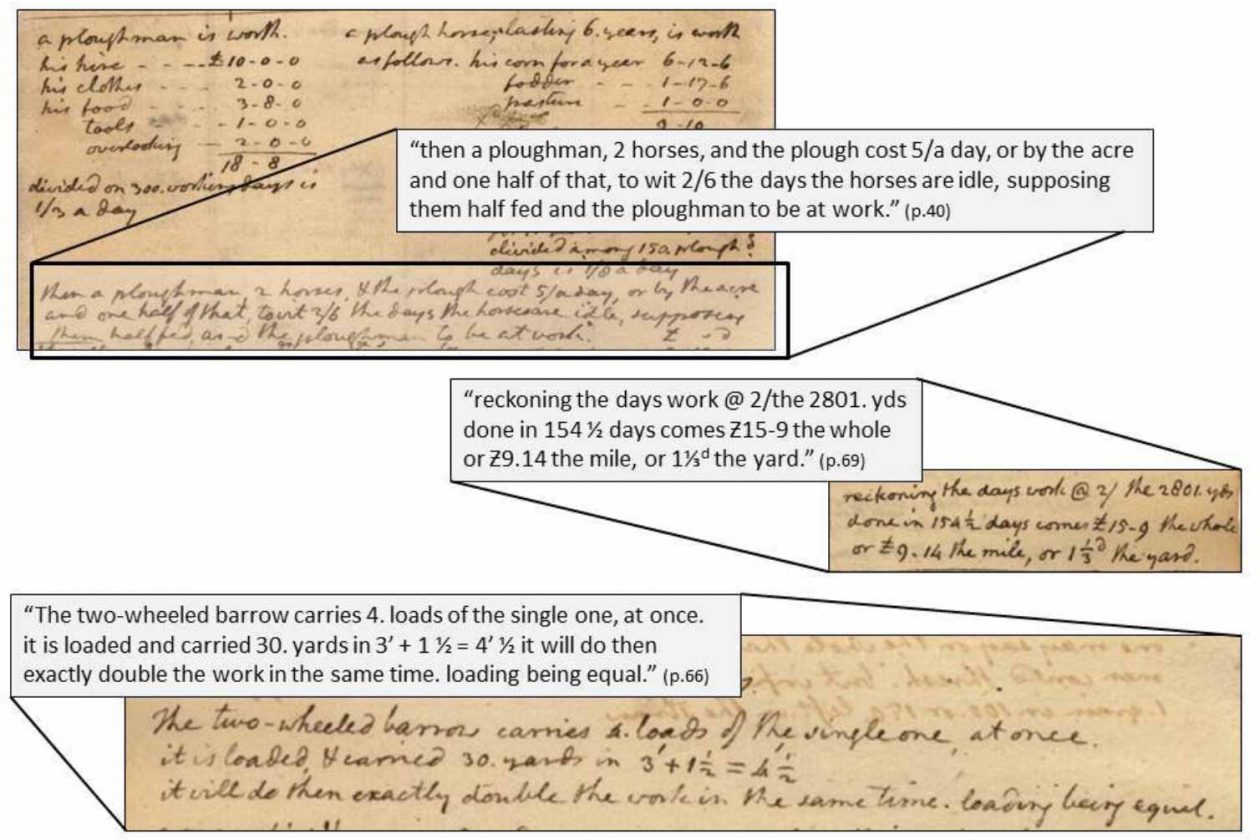 a ploughman is worth.
his hire - - - £10-0-0
his clothes - - - 2-0-0
his food - - - 3-8-0
tools - - 1-0-0
overlooking - 2-0-0
18-8
divided on 300. working days is
1/3 a day
a plough horse, lasting 6. years, is worth
as follows. his corn for a year 6-12-6
fodder - - - 1-17-6
pasture - - 1-0-0
9-10
“then a ploughman, 2 horses, and the plough cost 5/a day, or by the acre
and one half of that, to wit 2/6 the days the horses are idle, supposing
them half fed and the ploughman to be at work.” (p.40)
divided among 150. plough?
days is 1/8 a day
then a ploughman, 2 horses, & the plough cost 5/a day, or by the acre
and one half of that, to wit 2/6 the days the horses are idle, supposing
them half fed, and the ploughman to be at work.
“reckoning the days work @ 2/the 2801. yds
done in 154 ½ days comes Ƶ15-9 the whole
or Ƶ9.14 the mile, or 1⅓ᵈ the yard.” (p.69)
reckoning the days work @ 2/ the 2801. yds
done in 154 ½ days comes £15-9 the whole
or £9.14 the mile, or 1⅓ᵈ the yard.
“The two-wheeled barrow carries 4. loads of the single one, at once.
it is loaded and carried 30. yards in 3’ + 1 ½ = 4’ ½ it will do then
exactly double the work in the same time. loading being equal.” (p.66)
The two-wheeled barrow carries 4. loads of the single one, at once.
it is loaded & carried 30. yards in 3' + 1½ = 4½
it will do then exactly double the work in the same time. loading being equal.